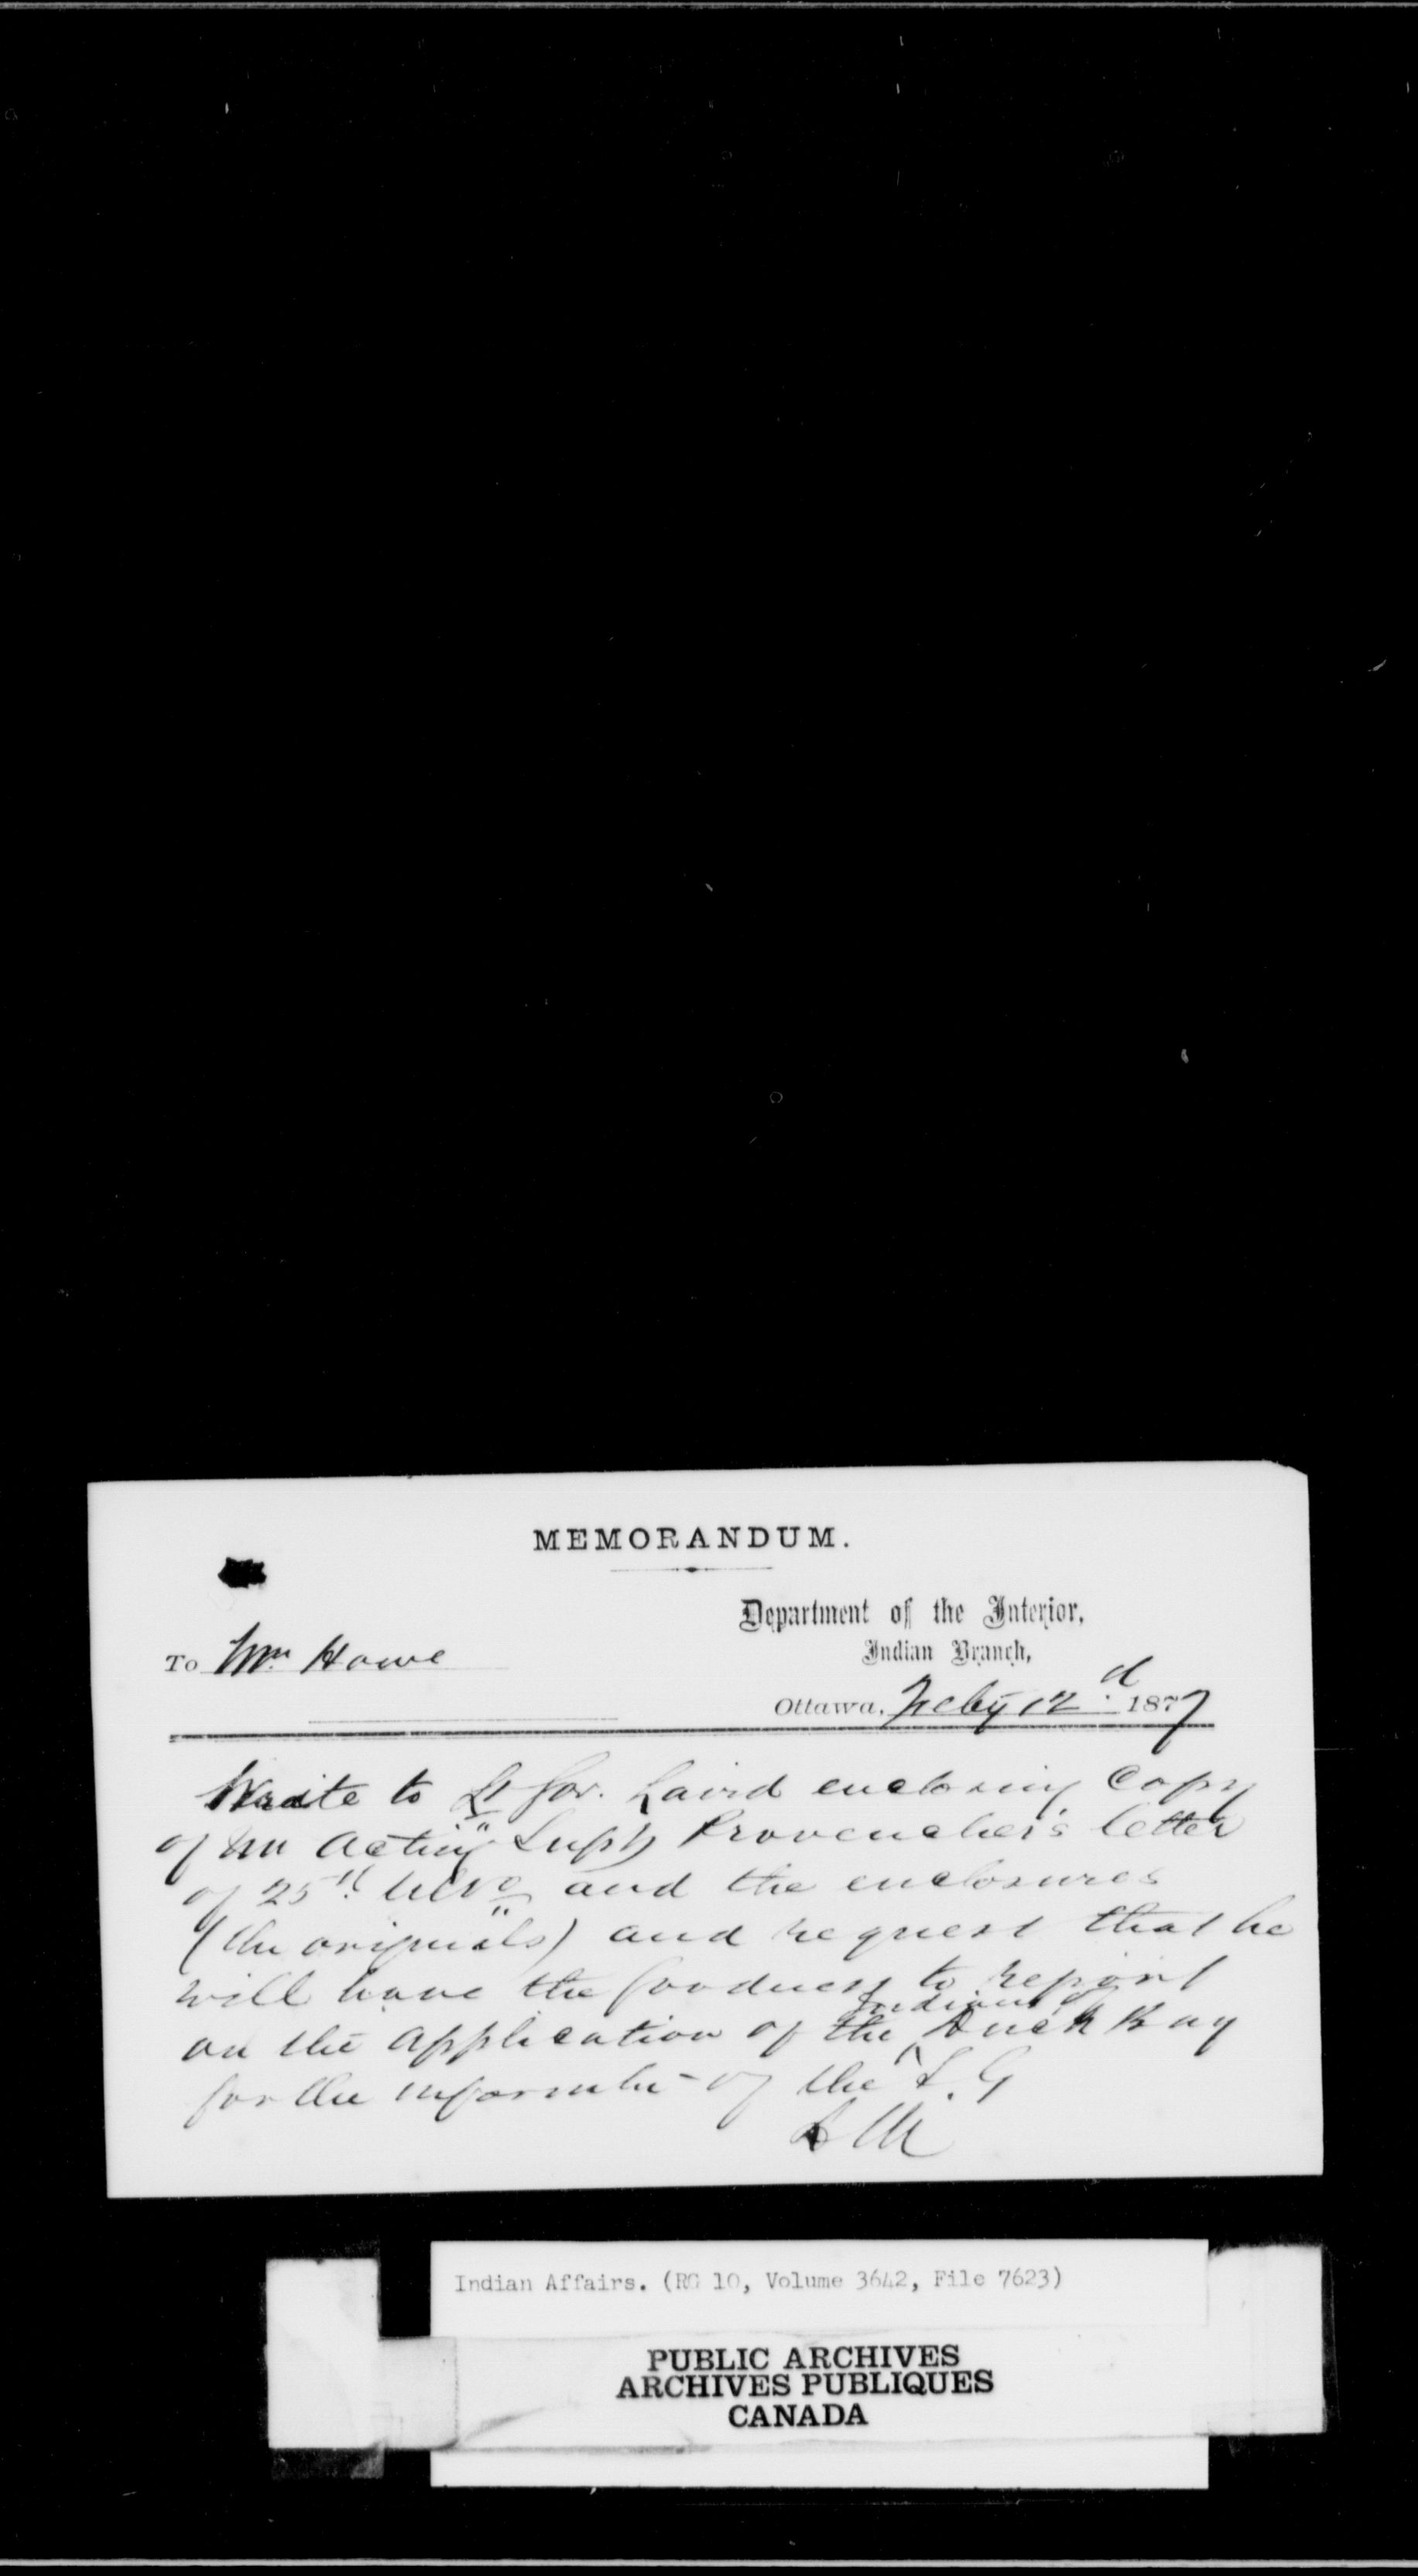 MEMORANDUM.
Department of the Interior,
Indian Branch,
To Mr. Howe
Ottawa, Feby 12d 1877
Write to Lt Gov. Laird enclosing Copy
of Mr Acting Supt Provencher's letter
of 25th ulto and the enclosures
(the originals) and request that he
will have the goodness to report
Indians of
on the application of the Duck Bay
for the informatn of the S. G
LM
Indian Affairs. (RG 10, Volume 3642, File 7623)
PUBLIC ARCHIVES
ARCHIVES PUBLIQUES
CANADA